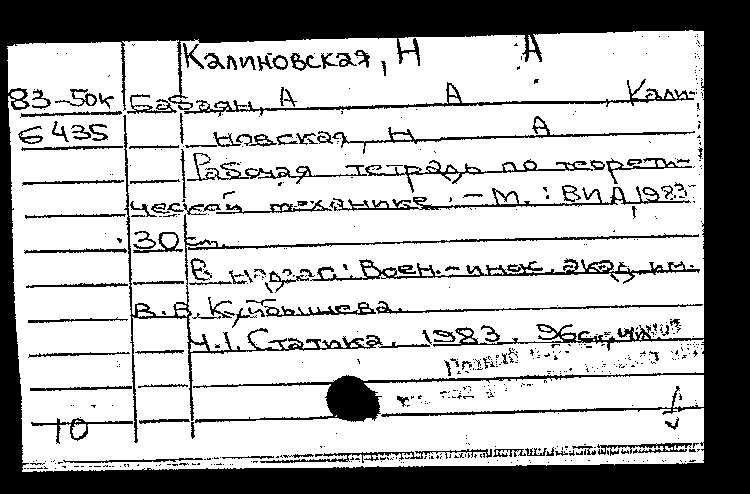 Калиновская, Н А
83-50к Бабаян, А А , Кали-
6435 новская, Н А
Рабочая тетрадь по теорети-
ческой механике. - М.: ВИА, 1983
30 см.
В надзаг.: Воен.-инж. акад. им.
В.В. Куйбышева.
Ч.1. Статика. 1983. 96с.,
10